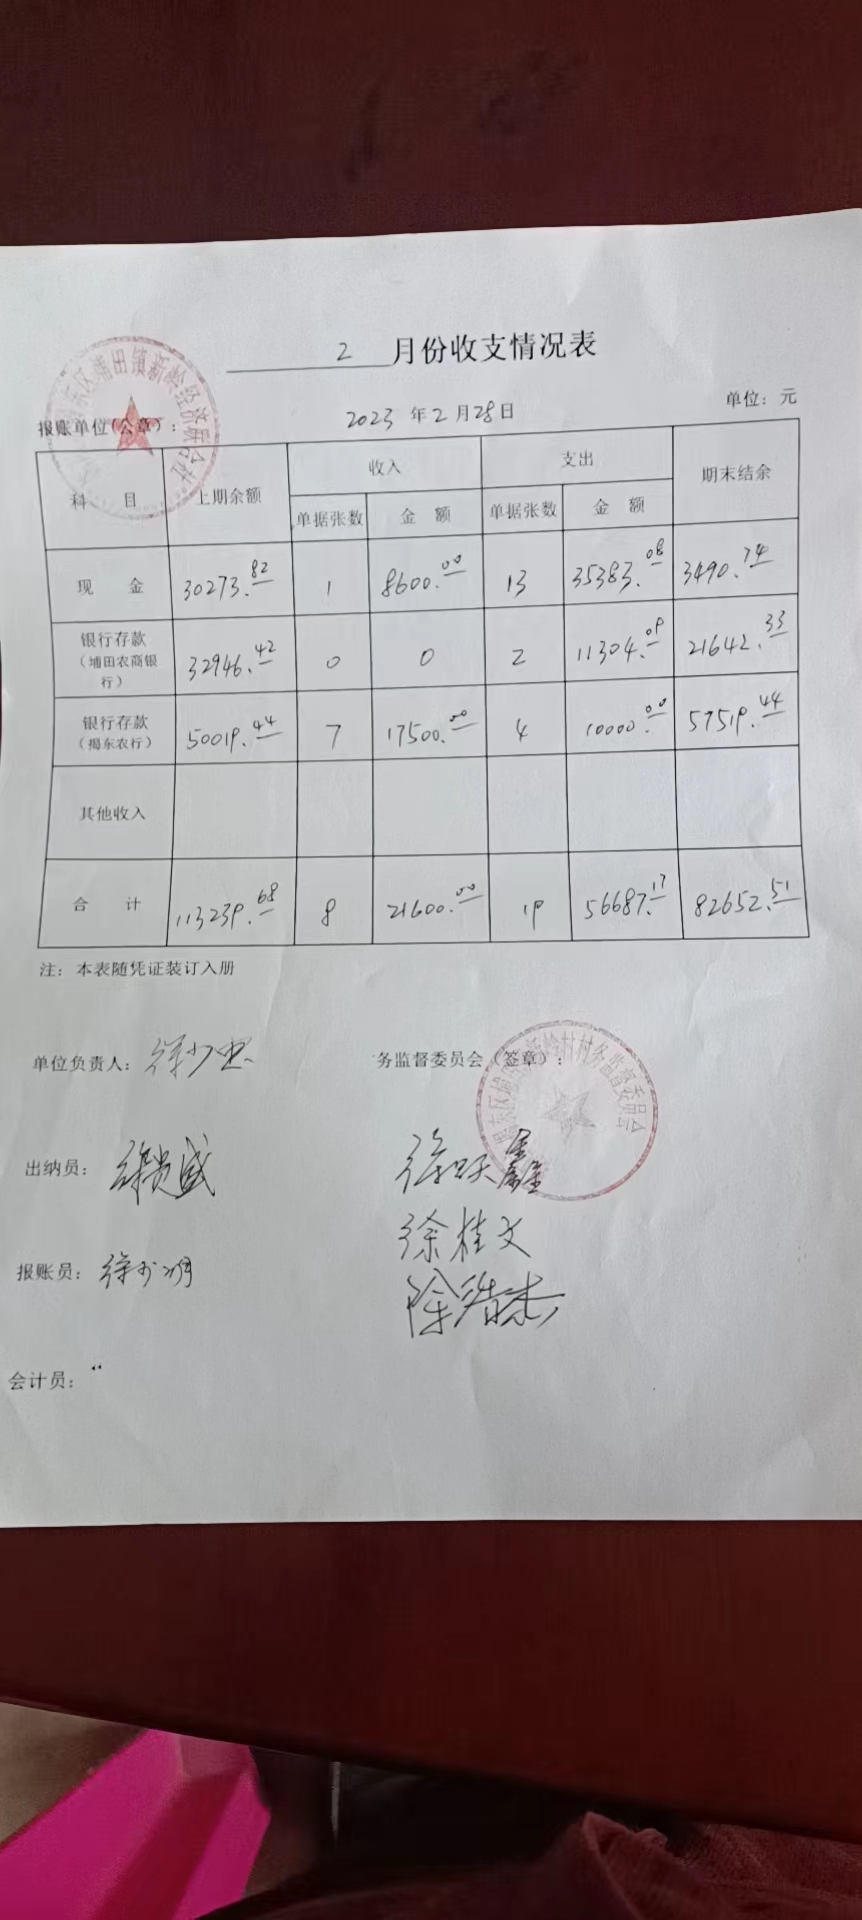 2 月份收支情况表
报账单位(公章): 2023 年 2 月 28 日 单位: 元
科 目 上期余额 收入 支出 期末结余
单据张数 金 额 单据张数 金 额
现 金 30273.82 1 8600.00 13 35383.08 3490.74
银行存款(埔田农商银行) 32946.42 0 0 2 11304.09 21642.33
银行存款(揭东农行) 50019.44 7 17500.00 4 10000.00 57519.44
其他收入
合 计 113239.68 8 21600.00 19 56687.17 82652.51
注: 本表随凭证装订入册
单位负责人: 务监督委员会(签章):
出纳员: 徐贵盛 徐跃鑫
徐桂文
报账员: 徐少明 徐浩杰
会计员:
揭东区埔田镇新岭经济联合社
新岭村村务监督委员会